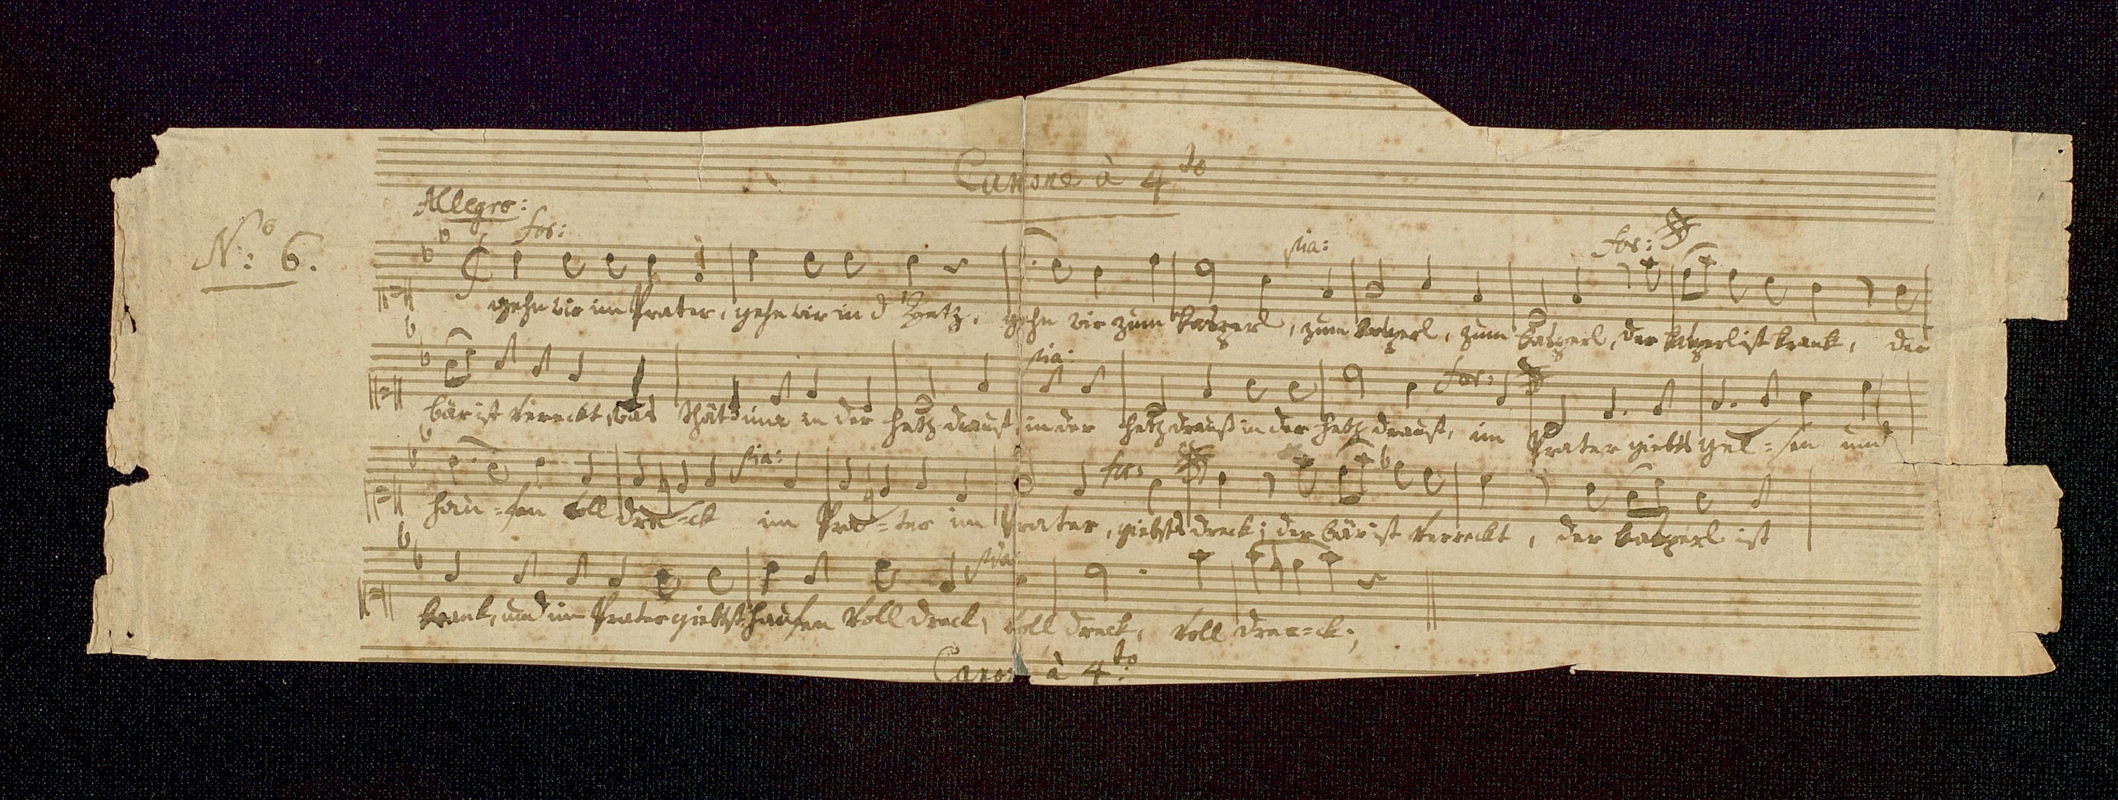 Canone à 4to
Allegro:
No: 6.
for:
pia:
for:
gehn wir im Prater, gehn wir in d' Hetz, gehn wir zum kasperl, zum kasperl, zum kasperl, der kasperl ist krank, der
pia:
for:
bär ist verreckt, was thät ma in der hetz drauß, in der hetz drauß in der hetz drauß, im Prater giebts gel=sen und
pia:
for:
hau=fen voll dre=ck im Pra=ter im Prater, giebts dreck; der bär ist verreckt, der kasperl ist
pia:
krank, und im Prater giebts haufen voll dreck, voll dreck, voll dree=ck;
Canone à 4to